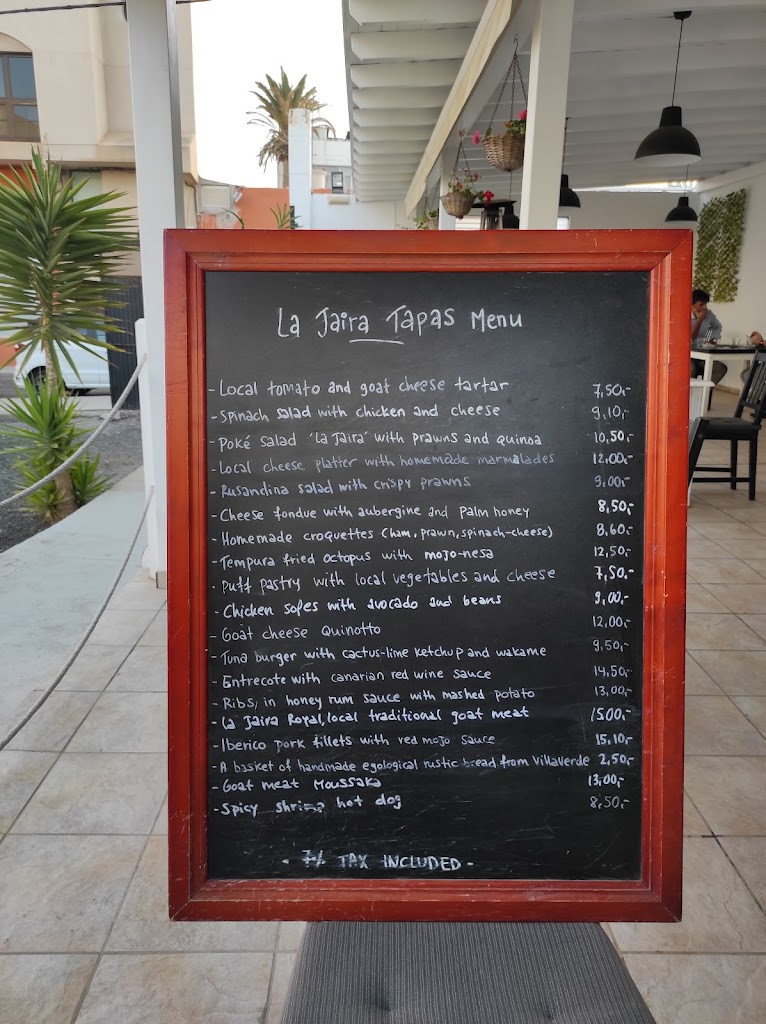 La Jaira Tapas Menu
- Local tomato and goat cheese tartar 7,50,-
- Spinach salad with chicken and cheese 9,10,-
- Poké salad 'La Jaira' with prawns and quinoa 10,50,-
- Local cheese platter with homemade marmalades 12,00,-
- Rusandina salad with crispy prawns 9,00,-
- Cheese fondue with aubergine and palm honey 8,50,-
- Homemade croquettes (ham, prawn, spinach-cheese) 8,60,-
- Tempura fried octopus with mojo-nesa 12,50,-
- Puff pastry with local vegetables and cheese 7,50,-
- Chicken sopes with avocado and beans 9,00,-
- Goat cheese Quinotto 12,00,-
- Tuna burger with cactus-lime ketchup and wakame 9,50,-
- Entrecote with canarian red wine sauce 14,50,-
- Ribs, in honey rum sauce with mashed potato 13,00,-
- La Jaira Royal, local traditional goat meat 15,00,-
- Iberico pork fillets with red mojo sauce 15,10,-
- A basket of handmade egological rustic bread from Villaverde 2,50,-
- Goat meat Moussaka 13,00,-
- Spicy shrimp hot dog 8,50,-
- 7% TAX INCLUDED -